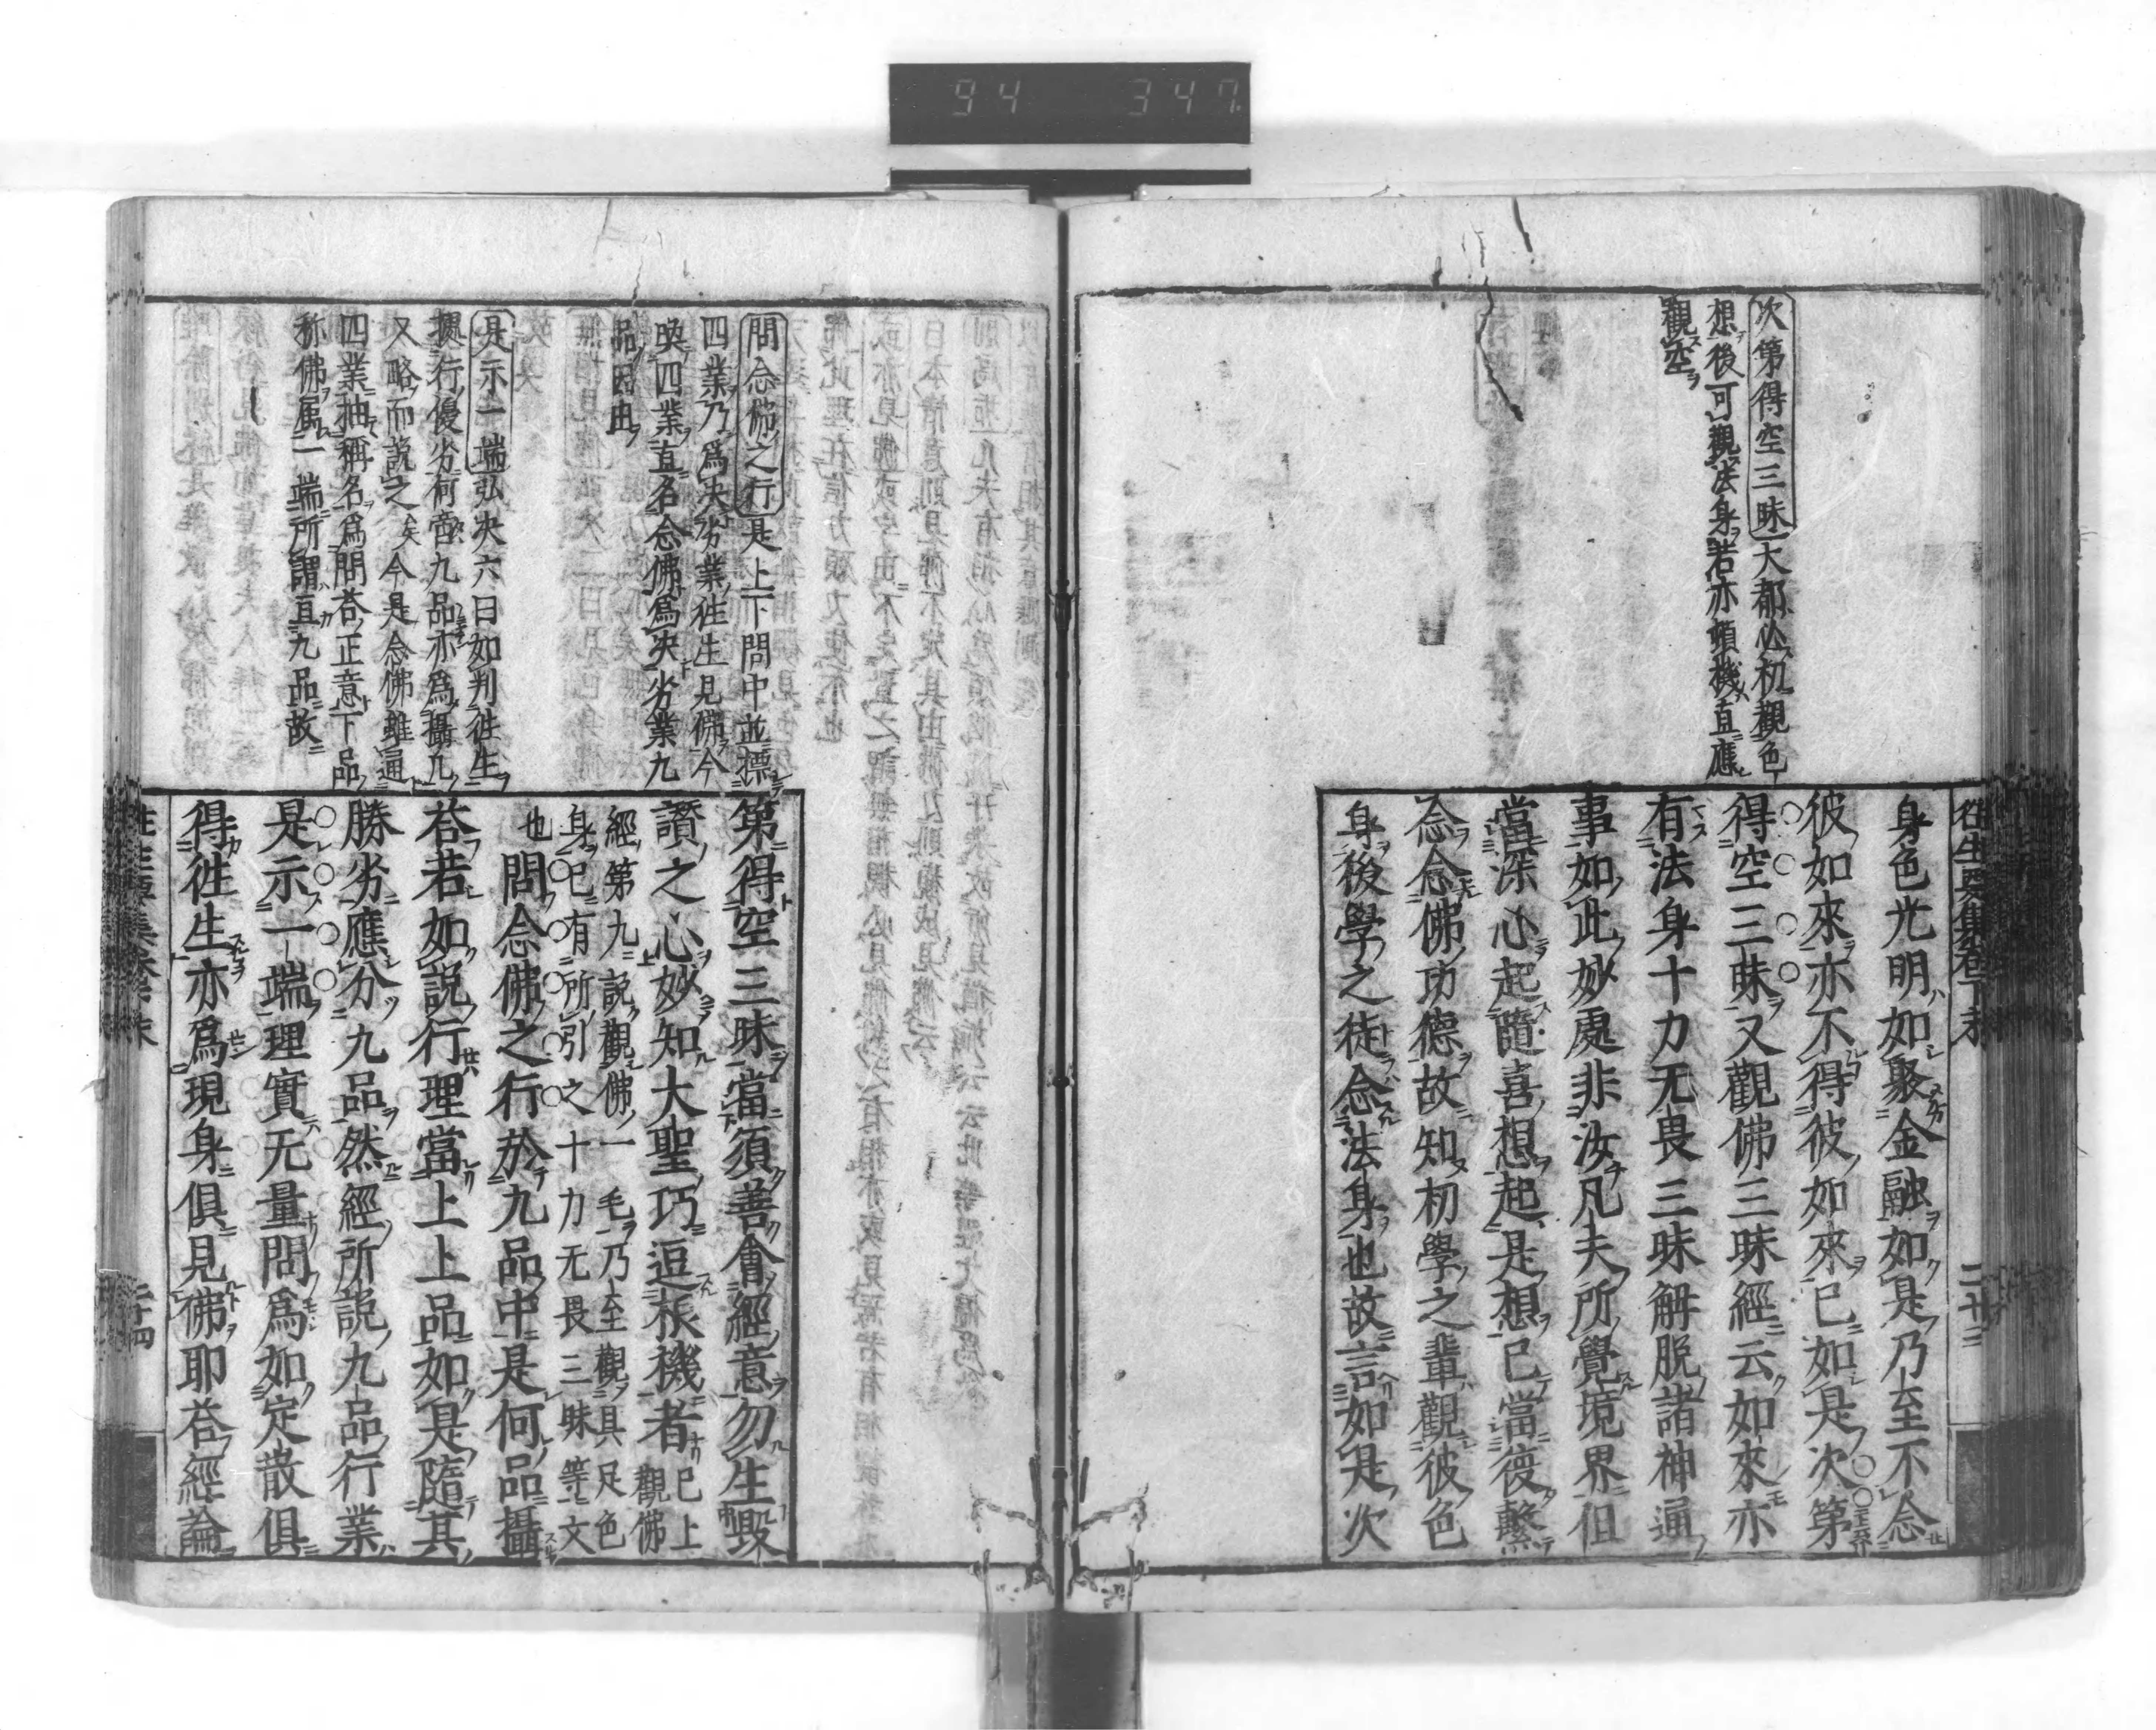 94 347
往生要集卷下末
二十三
次第得空三昧大都必初觀色
想後可觀法身若亦頓機直應
觀空
身色光明如聚金融如是乃至不念
彼如來亦不得彼如來已如是次第
得空三昧又觀佛三昧經云如來亦
有法身十力无畏三昧解脫諸神通
事如此妙處非汝凡夫所覺境界但
當深心起隨喜想起是想已當復繫
念念佛功德故知初學之輩觀彼色
身後學之徒念法身也故言如是次
問念佛之行是上下問中並標
四業乃爲決劣業往生見佛今
喚四業直名念佛爲決劣業九
品因由
是示一端弘決六曰如判往生
攝行優劣何啻九品亦爲攝凡
又略而說之矣今是念佛雖通
四業抽稱名爲問答正意下品
称佛属一端所謂直九品故
第得空三昧當須善會經意勿生毀
讚之心妙知大聖巧逗根機者已上觀佛
經第九說觀佛一毛乃至觀具足色
身已有所引之十力无畏三昧等文
也問念佛之行於九品中是何品攝
荅若如說行理當上上品如是隨其
勝劣應分九品然經所說九品行業
是示一端理實无量問爲如定散俱
得往生亦爲現身俱見佛耶荅經論
二十四